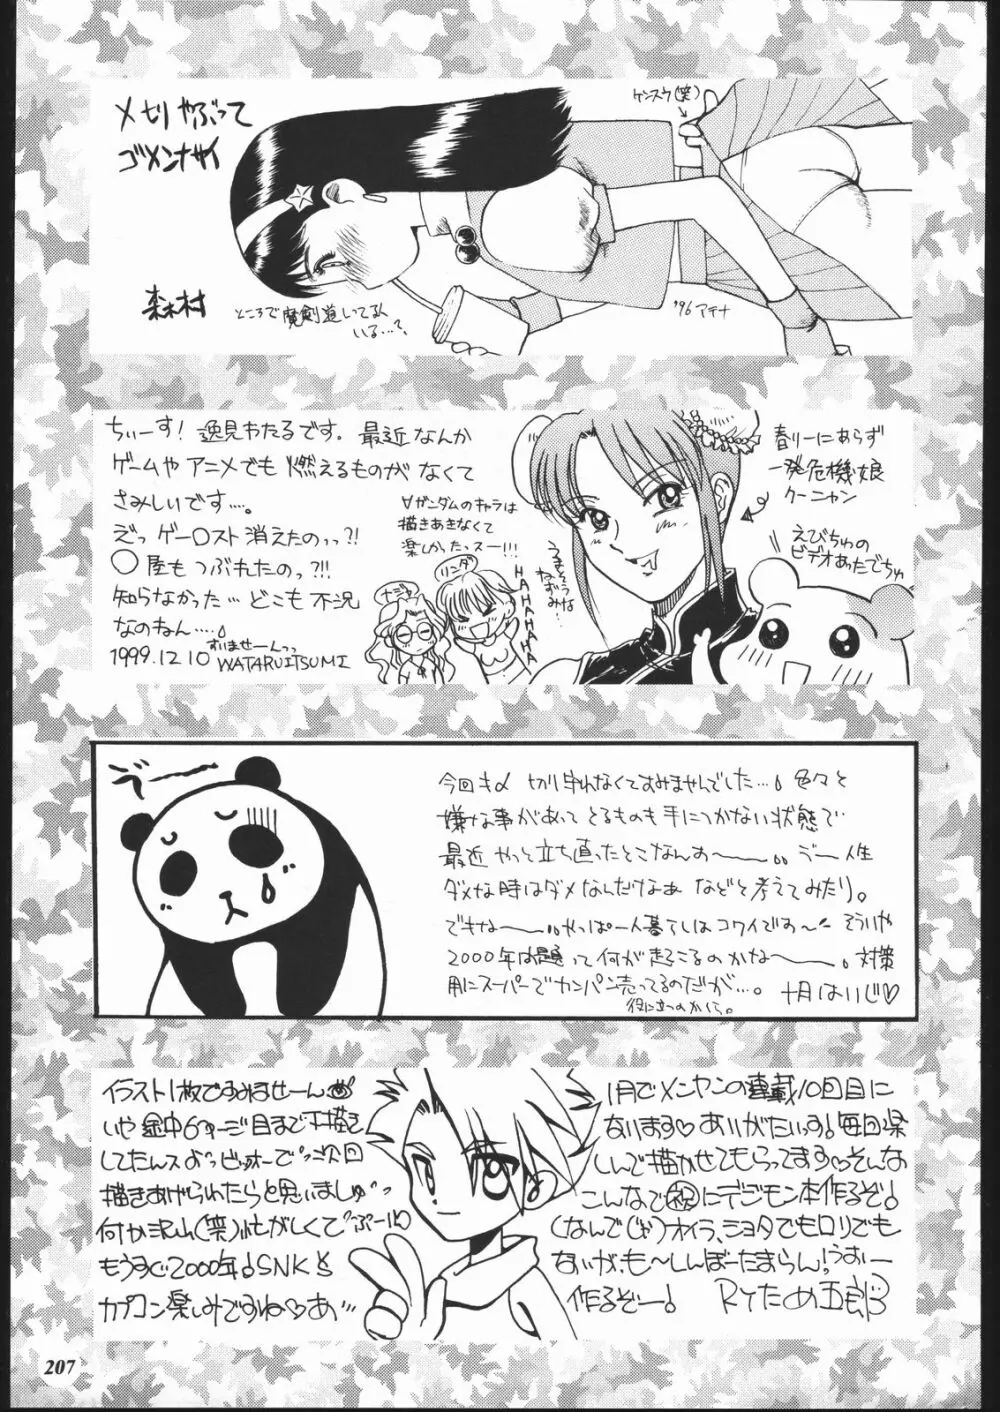 〆切りやぶって
ゴメンナサイ
ケンスウ(笑)
森村
ところで魔剣道いてるん
いる…?
'96 アテナ
ちぃーす! 逸見わたるです。最近なんか
ゲームやアニメでも燃えるものがなくて
さみしいです…。
えっゲー〇スト消えたのっっ?!
〇屋もつぶれたのっ?!!
知らなかった…どこも不況
なのねん‥‥。
すいませーんっっ
1999.12.10 WATARU ITSUMI
∀ガンダムのキャラは
描きあきなくて
楽しかったっスー!!!
リンダ
HAHAHAHA
うまそうな
ねずみ…
春リーにあらず
一発危機娘
クーニャン
えびちゅの
ビデオあったでちゅ
今回も〆切り守れなくてすみませんでした…。色々と
嫌な事があってとるものも手につかない状態で
最近やっと立ち直ったとこなんすー。
人生
ダメな時はダメなんだけなぁなどと考えてみたり。
やっぱ一人暮らしはコワイですぉ〜 そういや
2000年問題って何が起こるのかなー。対策
用にスーパーでカンパン売ってるのだが…。
役に立つのかしら。
十月はいじ♡
イラスト1枚ですみませーん
いや途中6ページ目まで下描き
してたんスよっ
次回
描きあげられたらと思いましゅ
何か沢山(笑)忙しくて
もうすぐ2000年♪SNKと
カプコン楽しみですね♡あ…
1月でメンヤンの連載10回目に
なります♡ありがたいっす!毎回楽
しんで描かせてもらってます♡そんな
こんなで㊗にデジモン本作るぞ♪
(なんでじゃ)オイラ、ショタでもロリでも
ないが、も〜しんぼーたまらん!うおー
作るぞー♪ RYため五郎
207